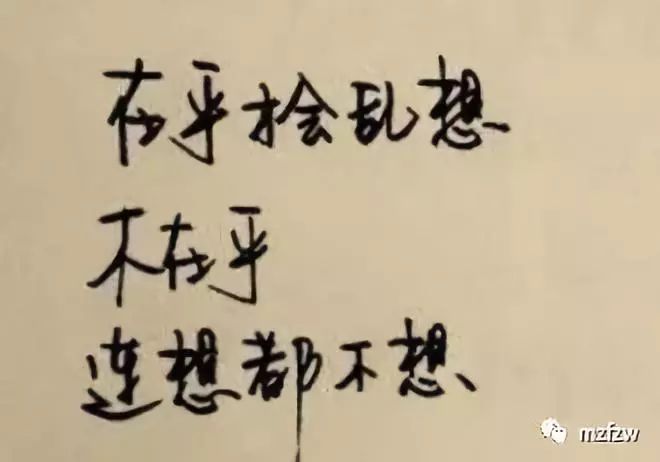 在乎才会乱想
不在乎
连想都不想
mzfzw